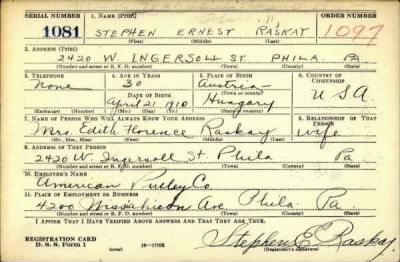 SERIAL NUMBER 1. NAME (Print) ORDER NUMBER
1081 STEPHEN ERNEST RASKAY 1097
(First) (Middle) (Last)
2. ADDRESS (Print)
2420 W. INGERSOLL ST PHILA. PA
(Number and street or R. F. D. number) (Town) (County) (State)
3. TELEPHONE 4. AGE IN YEARS 5. PLACE OF BIRTH 6. COUNTRY OF CITIZENSHIP
None 30 Austria-
DATE OF BIRTH (Town or county)
April 21 1910 Hungary U S A
(Exchange) (No.) (Mo.) (Day) (Yr.) (State or country)
7. NAME OF PERSON WHO WILL ALWAYS KNOW YOUR ADDRESS 8. RELATIONSHIP OF THAT PERSON
Mrs. Edith Florence Raskay wife
(Mr., Mrs., Miss) (First) (Middle) (Last)
9. ADDRESS OF THAT PERSON
2420 W. Ingersoll St Phila Pa
(Number and street or R. F. D. number) (Town) (County) (State)
10. EMPLOYER'S NAME
American Pulley Co.
11. PLACE OF EMPLOYMENT OR BUSINESS
4200 Wissahickon Ave Phila. Pa.
(Number and street or R. F. D. number) (Town) (County) (State)
I AFFIRM THAT I HAVE VERIFIED ABOVE ANSWERS AND THAT THEY ARE TRUE.
REGISTRATION CARD
D. S. S. Form 1 16-17105 Stephen E Raskay